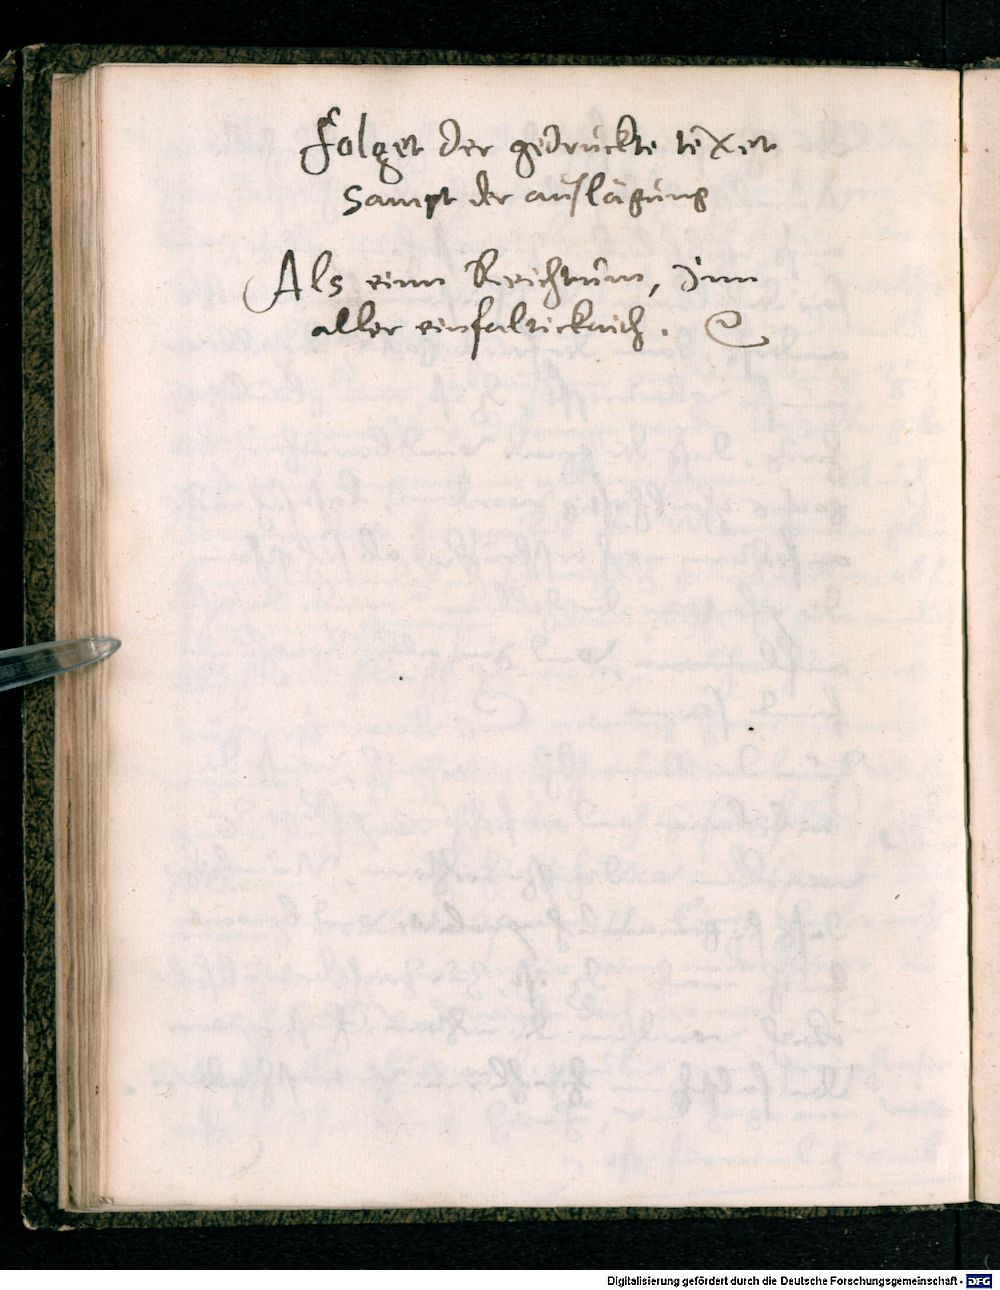 Folget der gedruckte texet
sampt der auslägung
Als einn Reichtum, Inn
aller einfaltickaich.
Digitalisierung gefördert durch die Deutsche Forschungsgemeinschaft - DFG